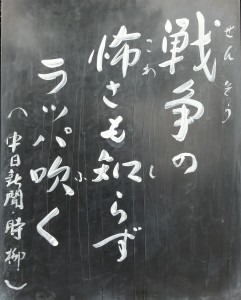 戦争の
せんそう
怖さも知らず
こわ
し
ラッパ吹く
ふ
(中日新聞・時柳)